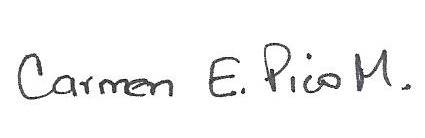 Carmen E. Pico M.